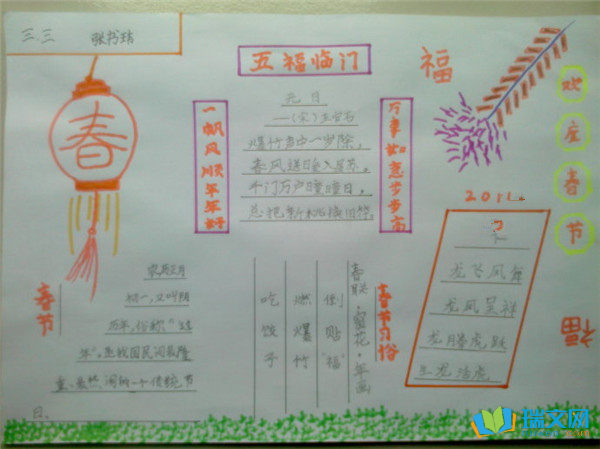 三.三
五福临门
福
欢庆春节
春
一帆风顺年年好
元日
——(宋)王安石
爆竹声中一岁除,
春风送暖入屠苏。
千门万户曈曈日,
总把新桃换旧符
万事如意步步高
春节
农历正月
初一,又叫阴
历年,俗称“过
年”,是我国民间最隆
重、最热闹的一个传统节
日。
春节习俗
春联·窗花·年画
倒贴“福”
燃爆竹
吃饺子
龙飞凤舞
龙凤呈祥
龙腾虎跃
生龙活虎
福
瑞文网